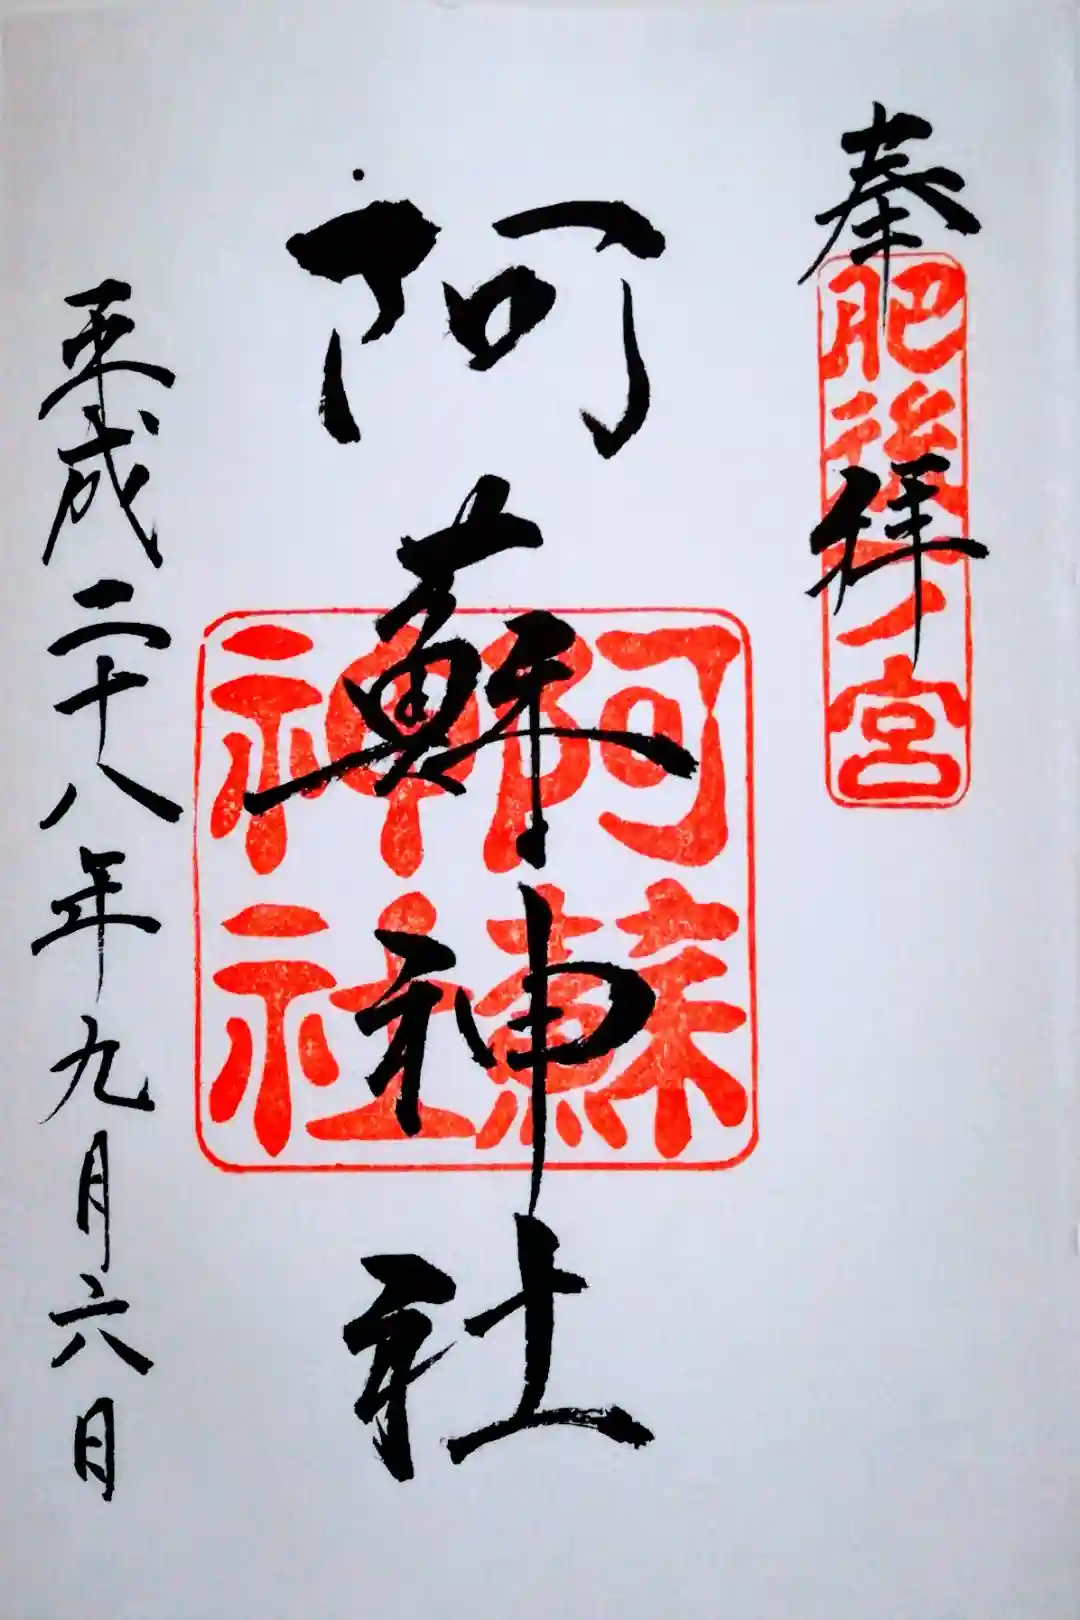 奉拝
肥後一ノ宮
阿蘇神社
阿蘇神社
平成二十八年九月六日